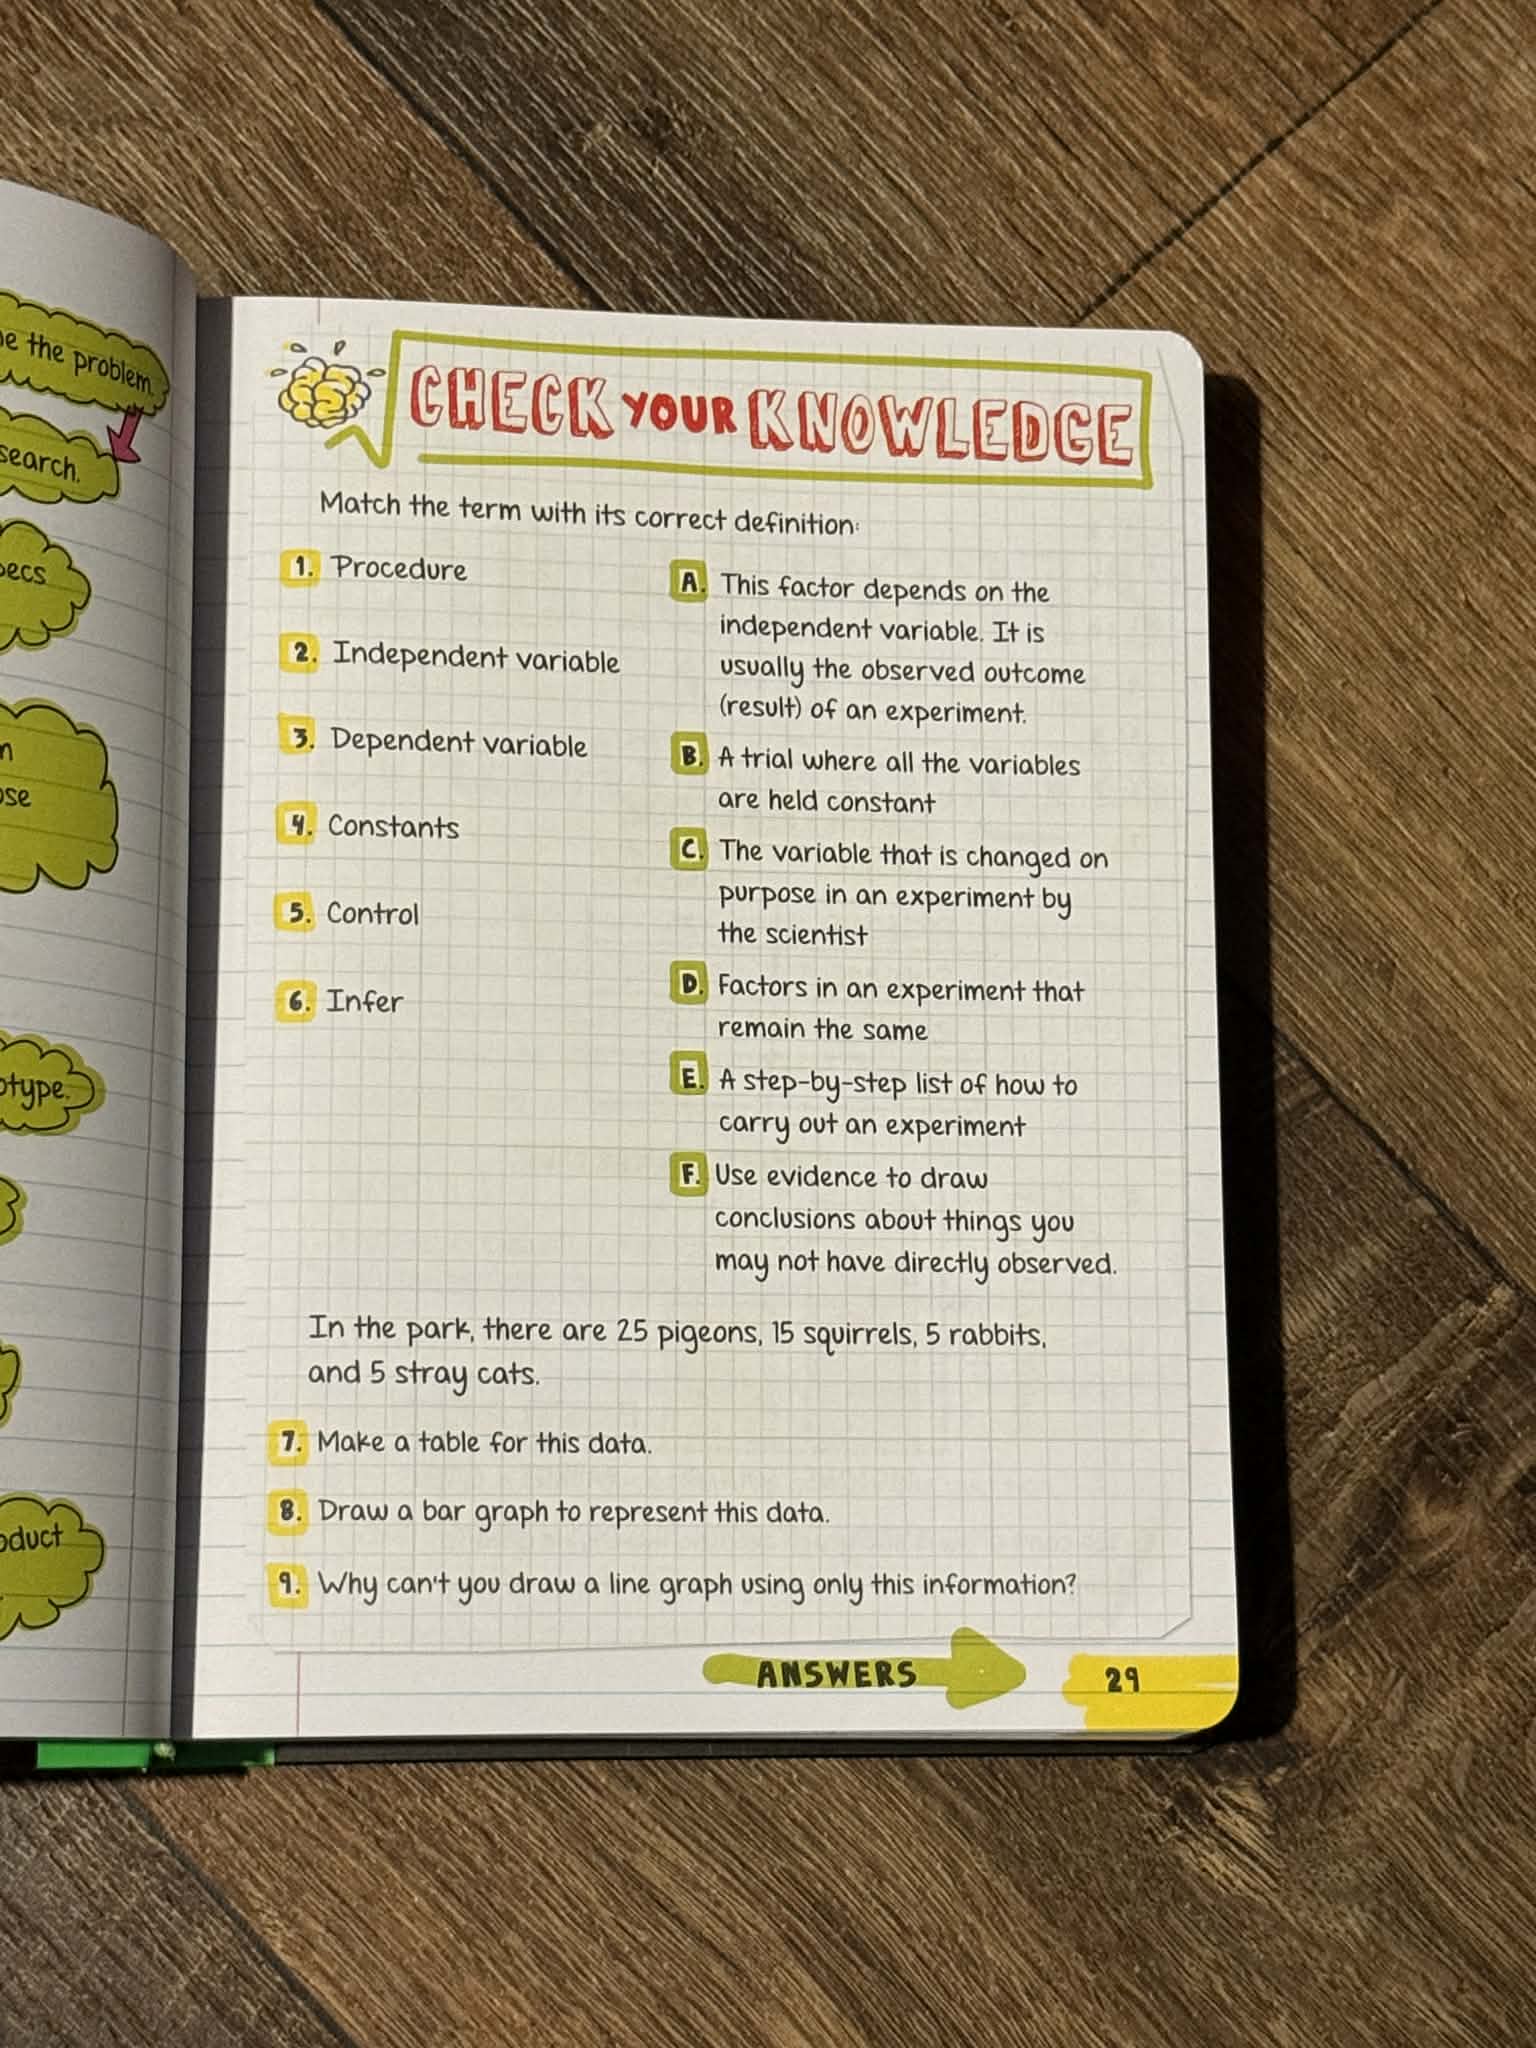 e the problem.
search.
pecs
n
ose
otype.
oduct
CHECK YOUR KNOWLEDGE
Match the term with its correct definition:
1. Procedure
2. Independent variable
3. Dependent variable
4. Constants
5. Control
6. Infer
A. This factor depends on the
independent variable. It is
usually the observed outcome
(result) of an experiment.
B. A trial where all the variables
are held constant
C. The variable that is changed on
purpose in an experiment by
the scientist
D. Factors in an experiment that
remain the same
E. A step-by-step list of how to
carry out an experiment
F. Use evidence to draw
conclusions about things you
may not have directly observed.
In the park, there are 25 pigeons, 15 squirrels, 5 rabbits,
and 5 stray cats.
7. Make a table for this data.
8. Draw a bar graph to represent this data.
9. Why can't you draw a line graph using only this information?
ANSWERS
29